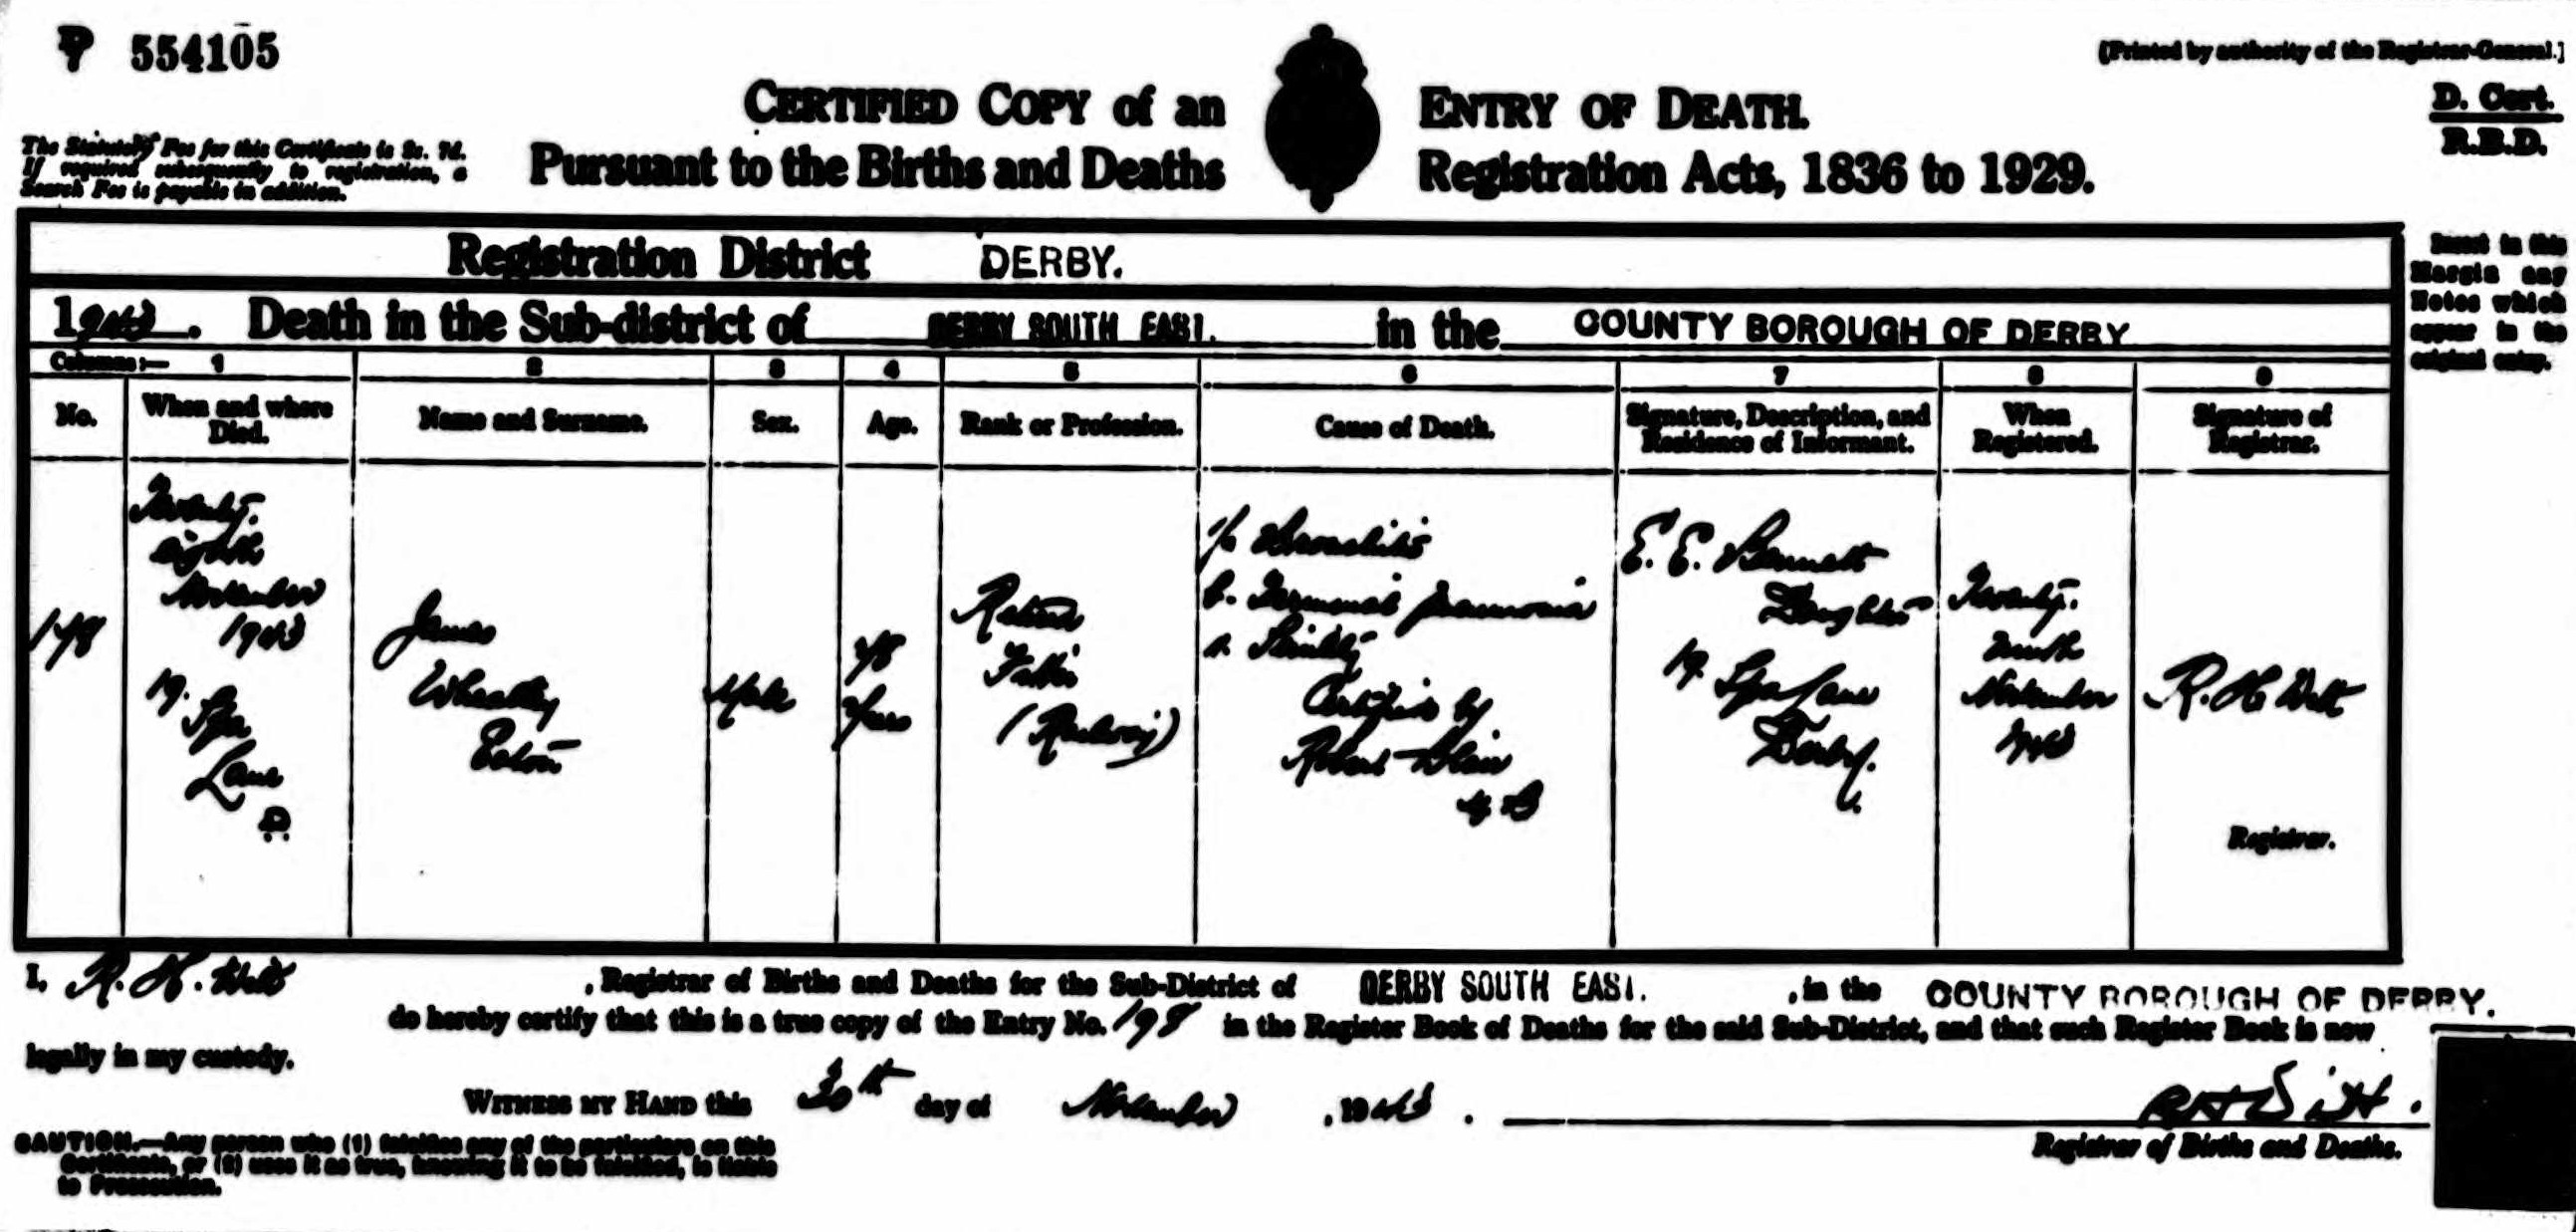 554105
[Printed by authority of the Registrar-General.]
D. Cert.
R.B.D.
CERTIFIED COPY of an ENTRY OF DEATH.
Pursuant to the Births and Deaths Registration Acts, 1836 to 1929.
The Statutory Fee for this Certificate is 2s. 7d.
If required subsequently to registration, a
Search Fee is payable in addition.
Registration District DERBY.
Death in the Sub-district of DERBY SOUTH EAST. in the COUNTY BOROUGH OF DERBY
Insert in this
Margin any
Notes which
appear in the
original entry.
Columns:— 1 2 3 4 5 6 7 8 9
No.
When and where
Died.
Name and Surname.
Sex.
Age.
Rank or Profession.
Cause of Death.
Signature, Description, and
Residence of Informant.
When
Registered.
Signature of
Registrar.
Twenty.
eighth
November
19.
Spa
Lane
James
Wheatley
Eaton
Male
Years
Retired
Fitter
(Railway)
Bronchitis
b. Terminal pneumonia
Senility
Certified by
Robert Blair
E. E. Bennett
Daughter
19. Spa Lane
Derby.
Twenty.
ninth
November
R. H. Witt
Registrar.
I, R. H. Witt, Registrar of Births and Deaths for the Sub-District of DERBY SOUTH EAST., in the COUNTY BOROUGH OF DERBY.
do hereby certify that this is a true copy of the Entry No. 198 in the Register Book of Deaths for the said Sub-District, and that such Register Book is now
legally in my custody.
WITNESS MY HAND this 30th day of November
R H Witt.
Registrar of Births and Deaths.
CAUTION.—Any person who (1) falsifies any of the particulars on this
Certificate, or (2) uses it as true, knowing it to be falsified, is liable
to Prosecution.